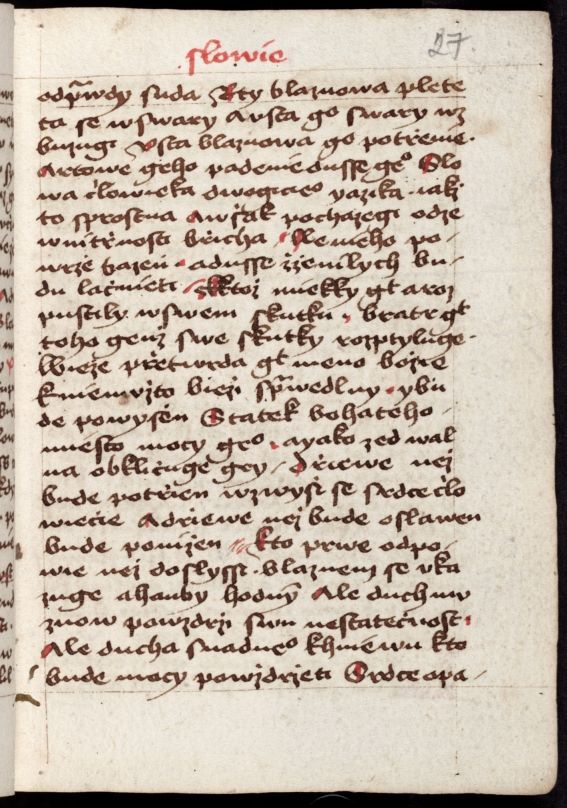 slowie
27.
odp̄wdy suda Rty blaznowa plete
ta se wswary Austa g̊ swary wz
buzugi Vsta blaznowa g̊ potrzenie.
Artowe geho padenie dusse ge̊ Slo
wa člowieka dwogiceo yazika iakž
to sprostna Awšak pochazegi odze
wnitřnosti břicha
wrže bazeň. adusse zženilych bu-
du lačnieti / Ktož miekky gt aroz
pustily wswem skutku. bratr gt
toho genž swe skutky rozptyluge.
Wieže přetwrda gt meno bozie
kniemužto bieži sp̄wedlny. ybu
de powysen Statek bohateho.
miesto mocy geo. ayako zed wal
na obkličuge gey. dřiewe než
bude potřien wzwyši se srdce člo
wiecie Adriewe než bude oslawen
bude ponižen kto prwe odpo-
wie než doslyssi. blaznem se vka
zuge ahanby hodny Ale duch mu
zuow powzdrži swu nestatečnost.
Ale ducha snadneo khniewu kto
bude mocy powzdržeti Srdce opa-